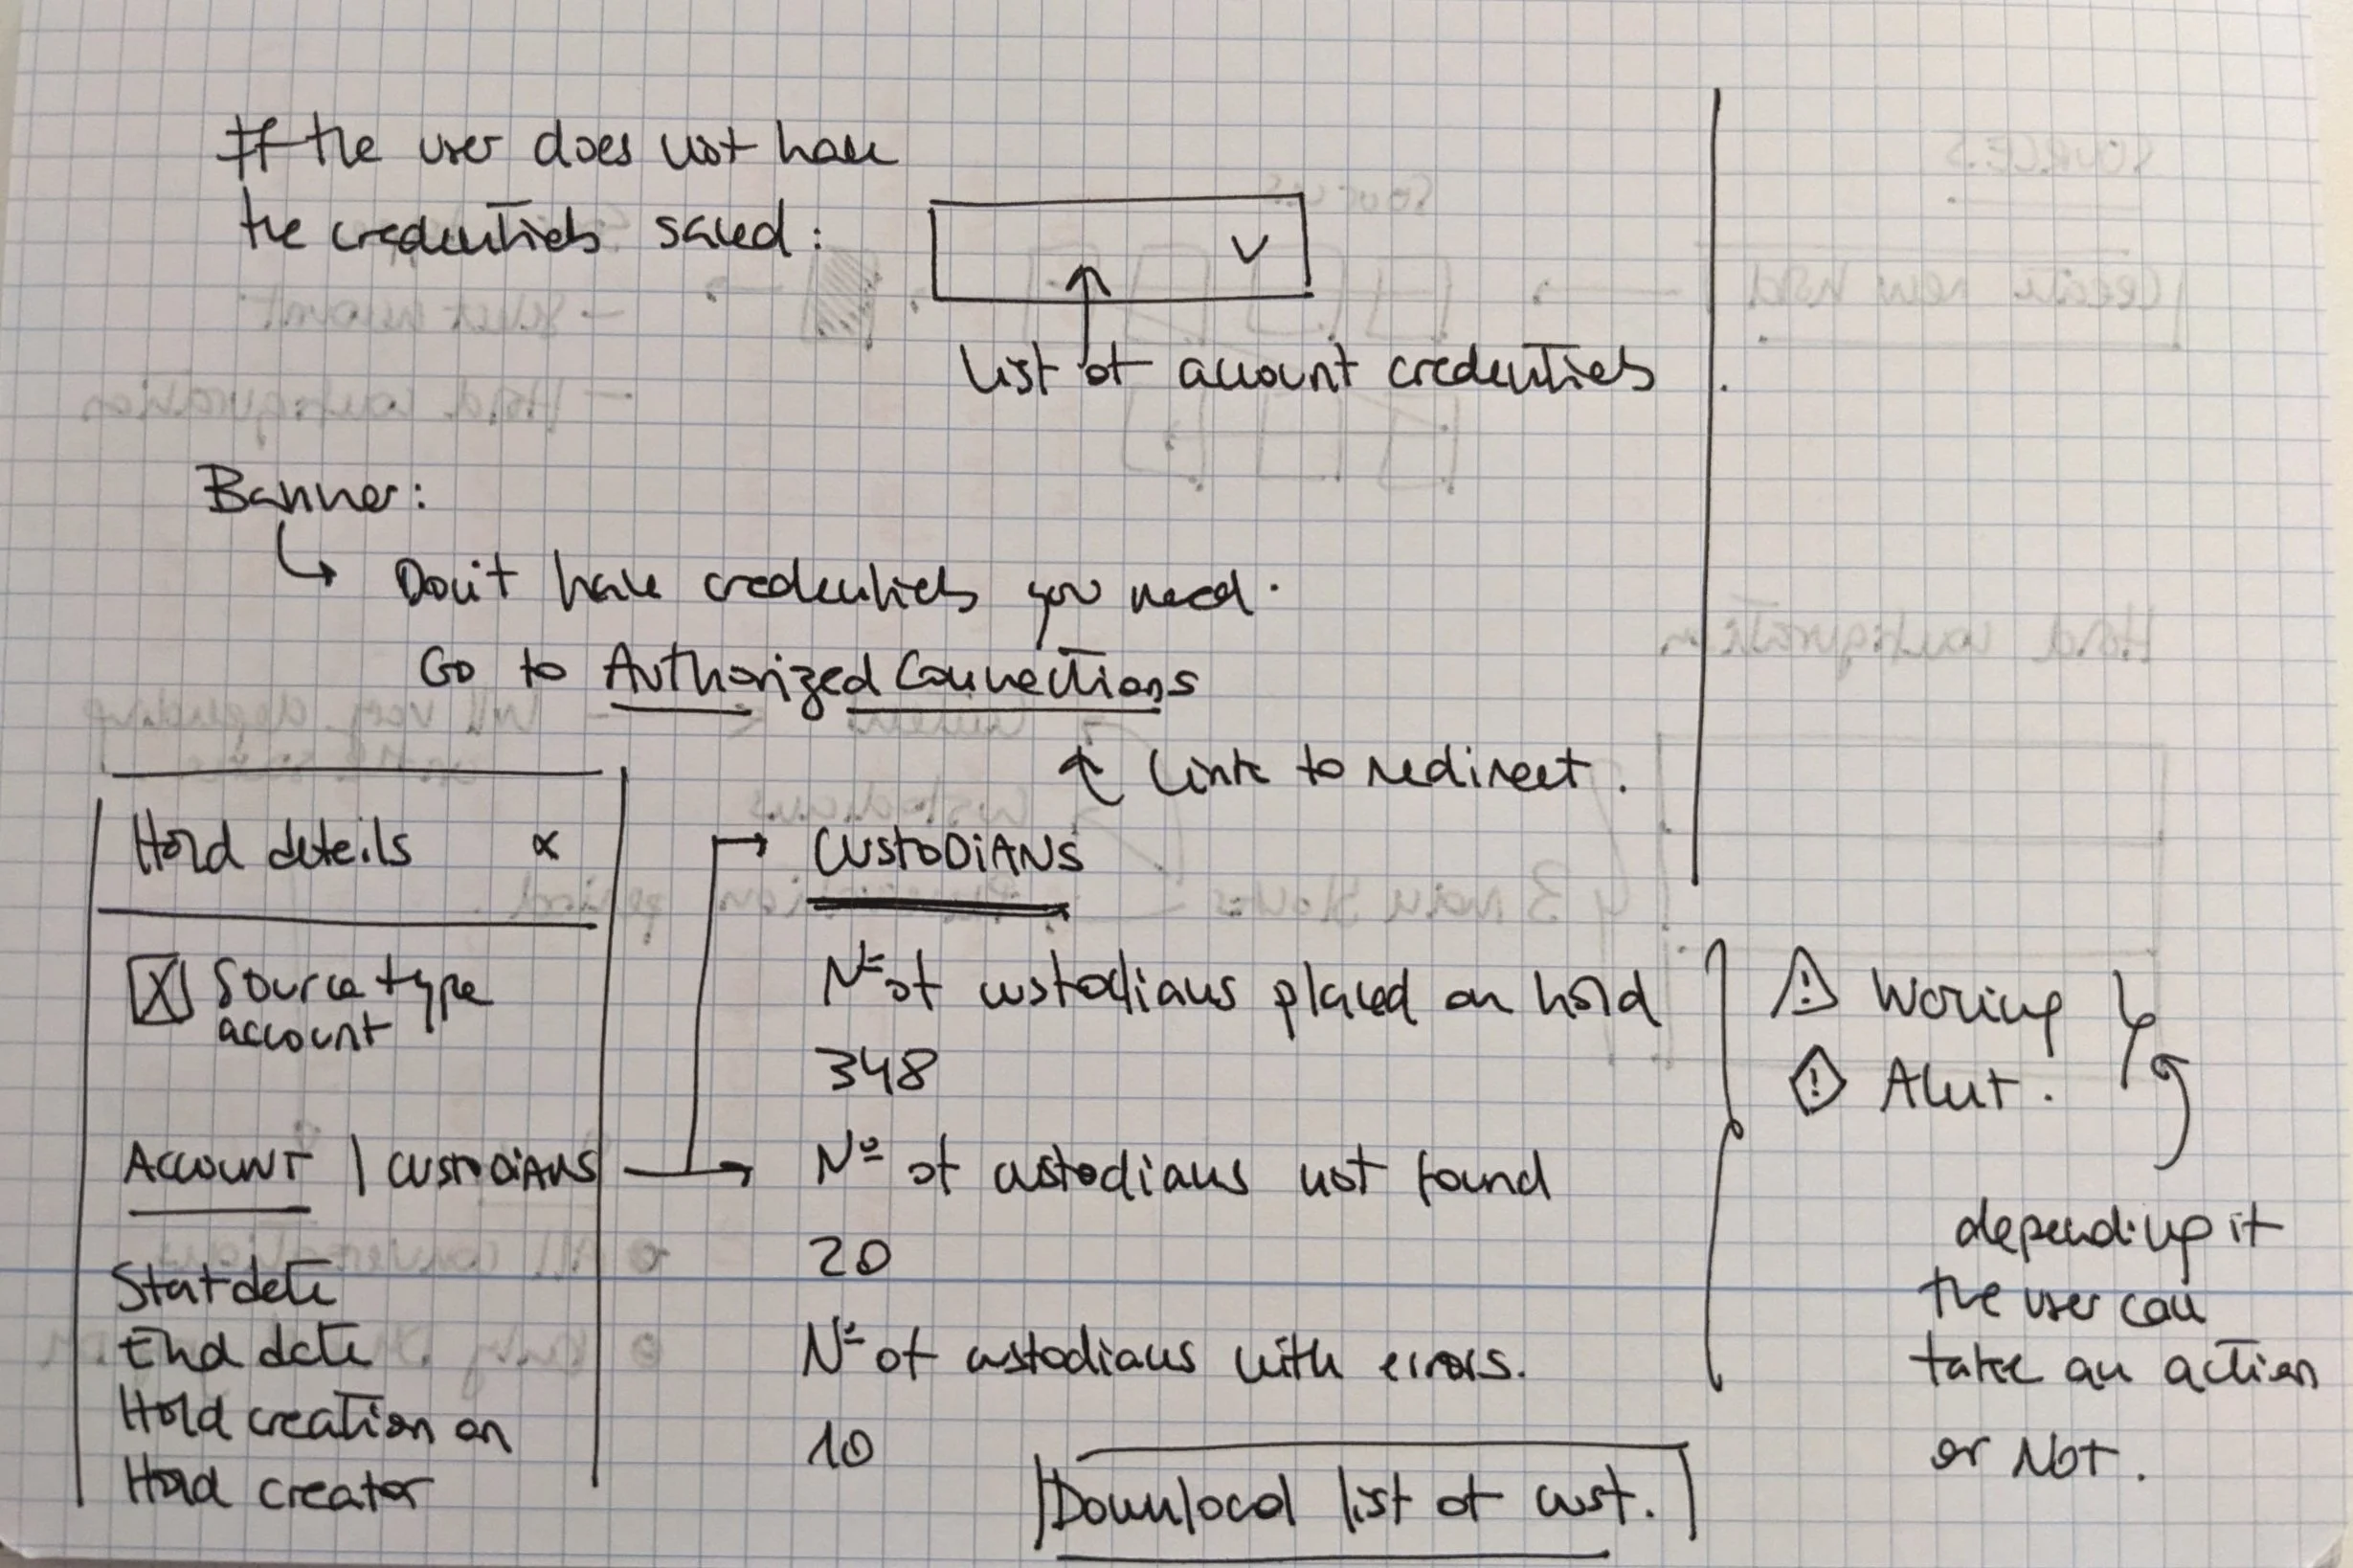 If the user does not have
the credentials saved:
V
list of account credentials
Banner:
Don't have credentials you need.
Go to Authorized Connections
Link to redirect.
Hold details x
X Source type
account
ACCOUNT | CUSTODIANS
Start date
End date
Hold creation on
Hold creator
CUSTODIANS
Nº of custodians placed on hold
348
Nº of custodians not found
20
Nº of custodians with errors.
10
Download list of cust.
! Woring
! Alert.
depending if
the user can
take an action
or Not.